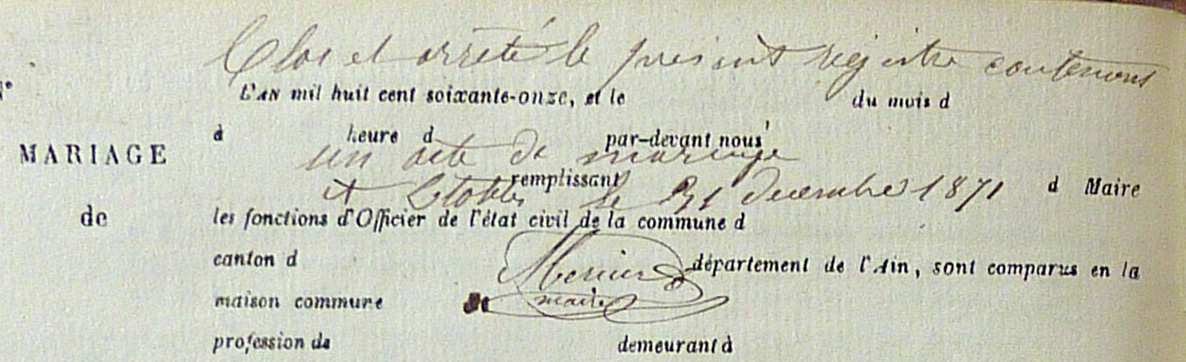 Clos et arrêté le présent registre contenant
N°
L'AN mil huit cent soixante-onze, et le du mois d
à heure d par-devant nous
un acte de mariage
MARIAGE
remplissant d Maire
le 31 décembre 1871
de
les fonctions d'Officier de l'état civil de la commune d
canton d département de l'Ain, sont comparus en la
Mercier
maison commune
maire
profession de demeurant à